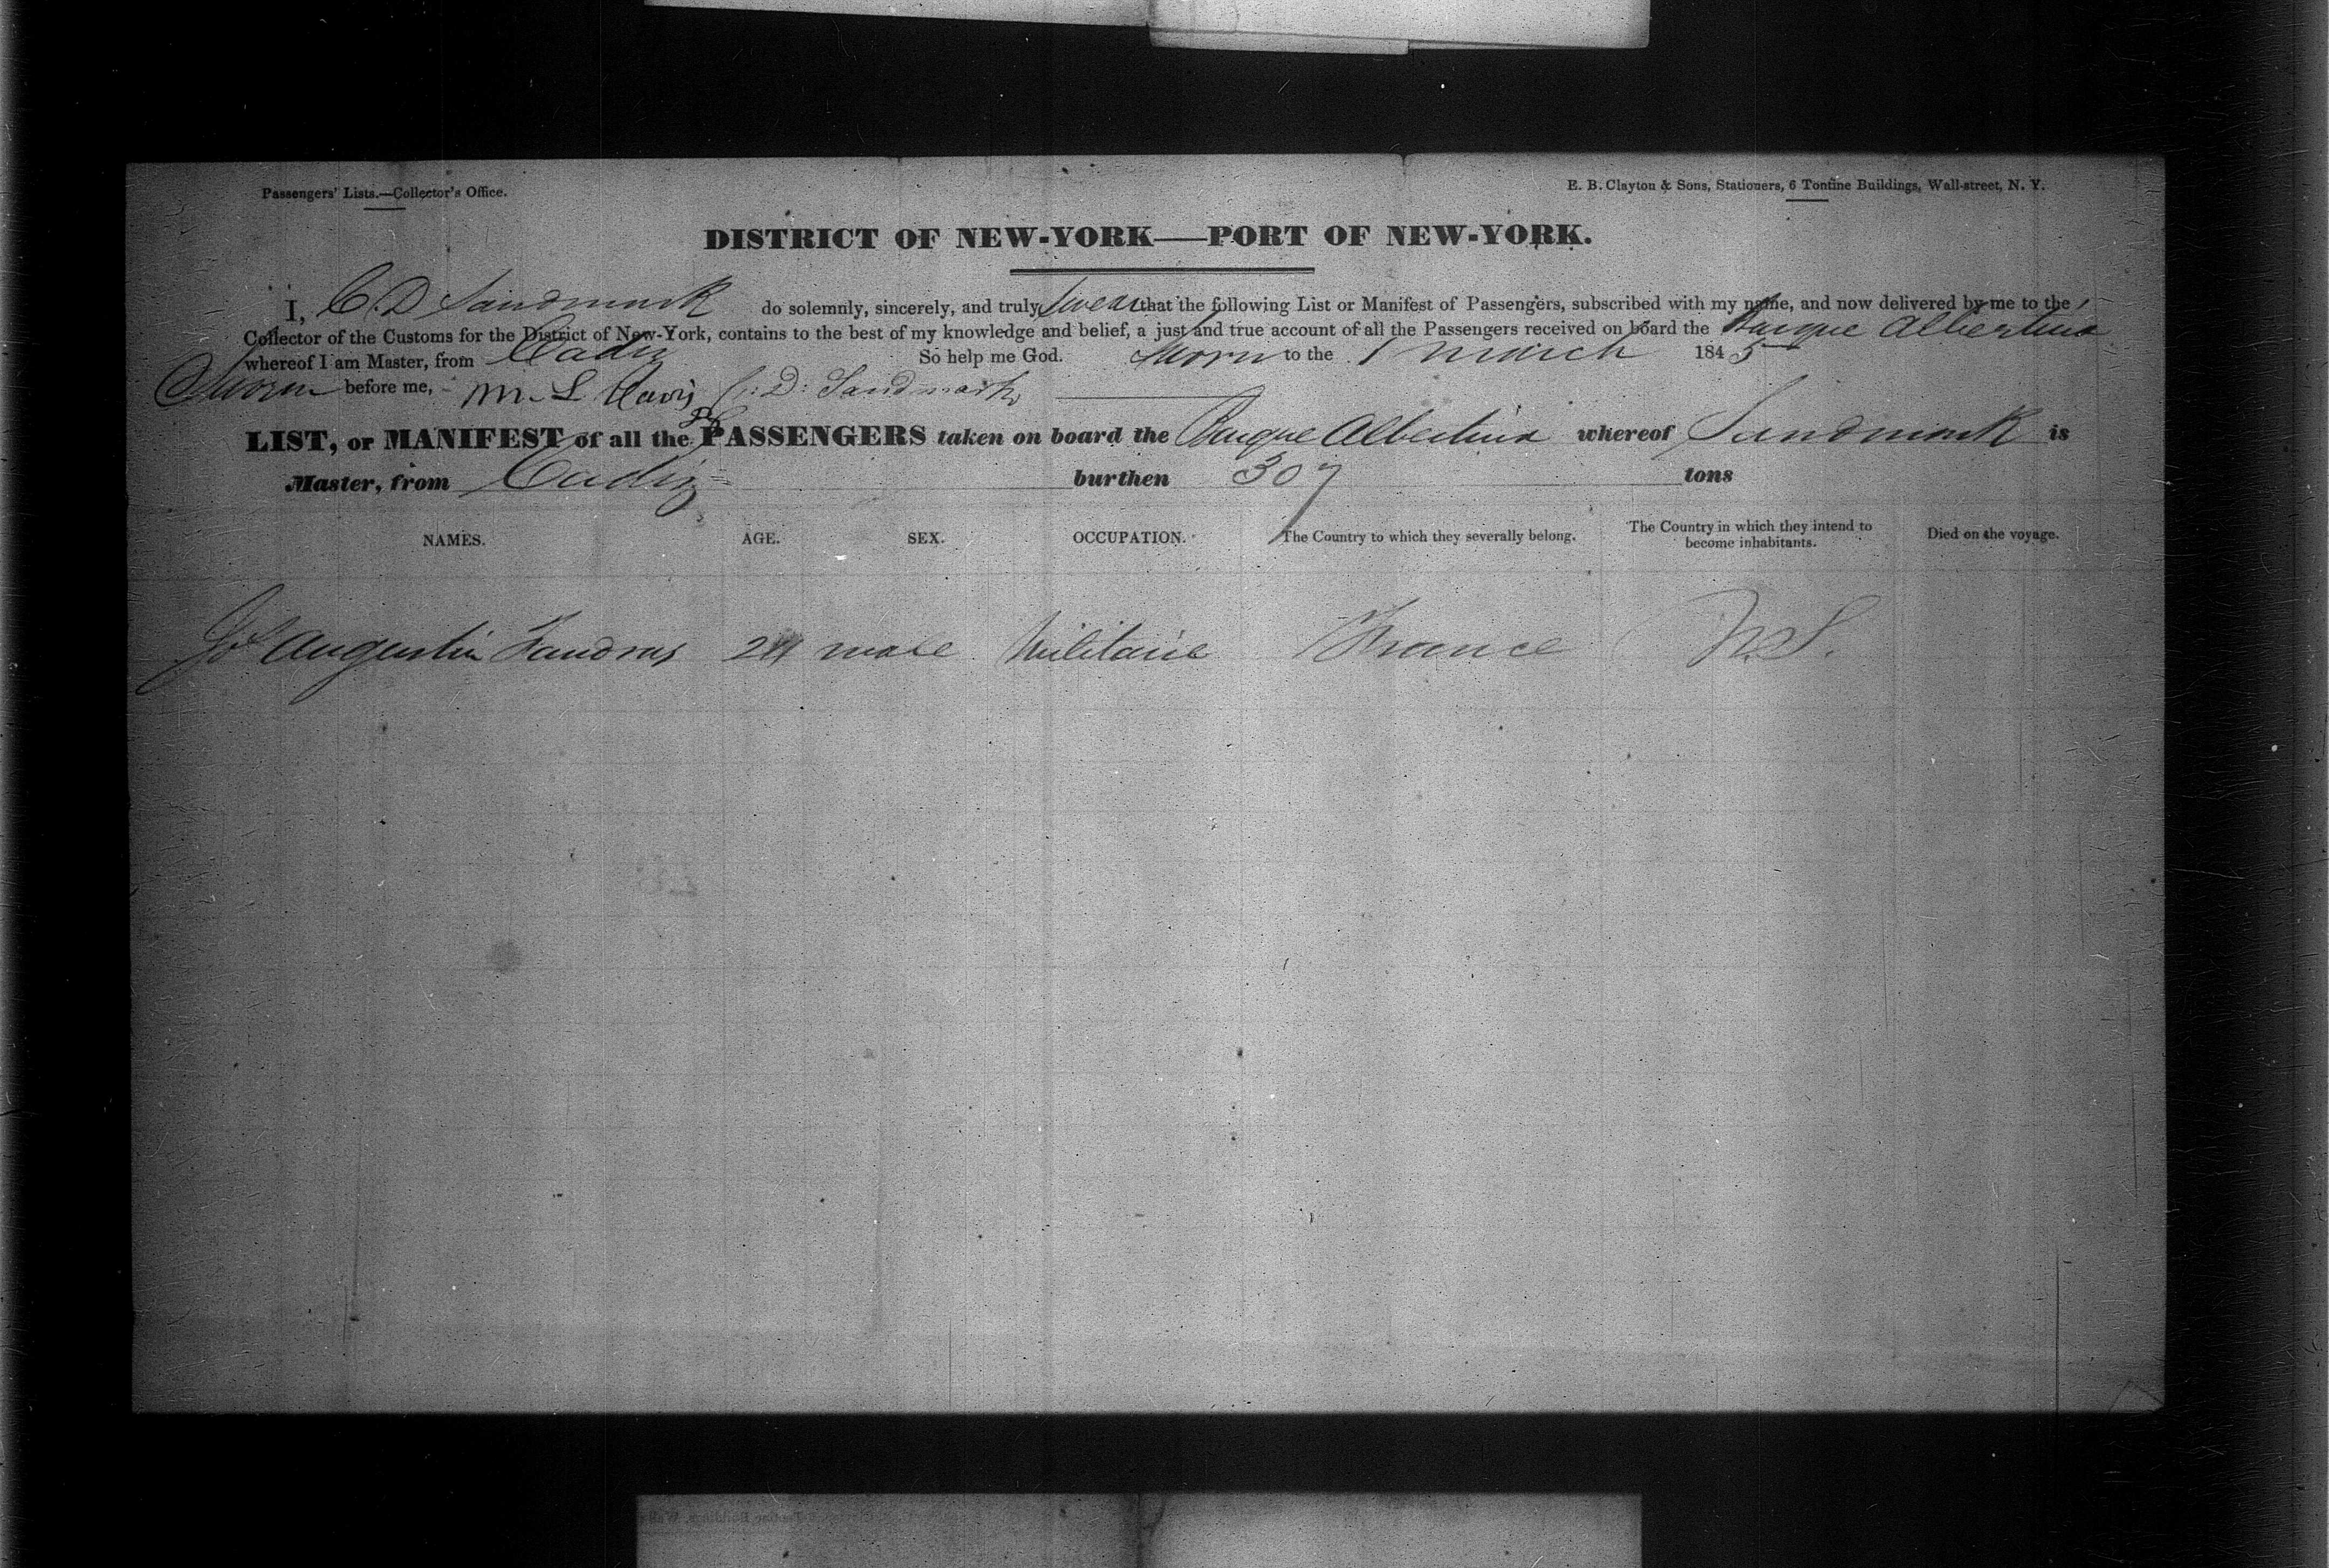 Passengers' Lists.—Collector's Office.
E. B. Clayton & Sons, Stationers, 6 Tontine Buildings, Wall-street, N. Y.
DISTRICT OF NEW-YORK—PORT OF NEW-YORK.
I, C. D Sandmark do solemnly, sincerely, and truly Swear that the following List or Manifest of Passengers, subscribed with my name, and now delivered by me to the
Collector of the Customs for the District of New-York, contains to the best of my knowledge and belief, a just and true account of all the Passengers received on board the Barque Albertina
whereof I am Master, from Cadiz So help me God. Sworn to the 1 March 1845
Sworn before me, M. L Davis C: D: Sandmark
LIST, or MANIFEST of all the PASSENGERS taken on board the Barque Albertina whereof Sandmark is
Master, from Cadiz burthen 307 tons
NAMES. AGE. SEX. OCCUPATION. The Country to which they severally belong. The Country in which they intend to become inhabitants. Died on the voyage.
Augustin 24 male Militaire France